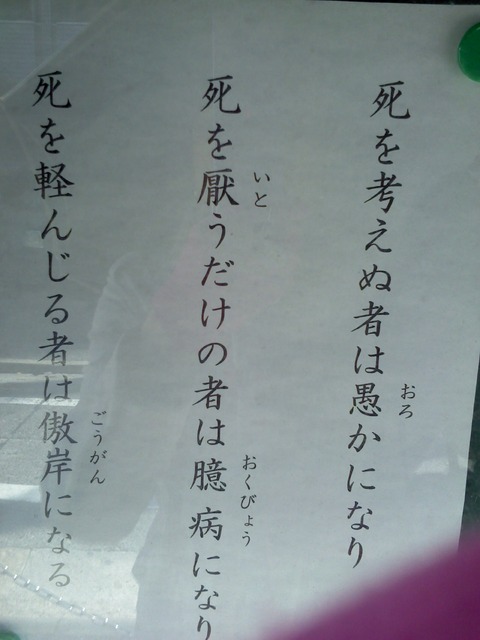 死を考えぬ者は愚かになり
おろ
死を厭うだけの者は臆病になり
いと
おくびょう
死を軽んじる者は傲岸になる
ごうがん